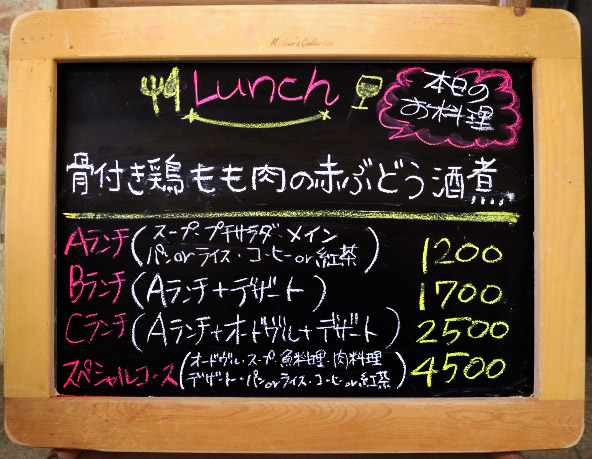 Mother's Collection
Lunch
本日の
お料理
骨付き鶏もも肉の赤ぶどう酒煮
Aランチ(スープ・プチサラダ・メイン
パンorライス・コーヒーor紅茶) 1200
Bランチ(Aランチ+デザート) 1700
Cランチ(Aランチ+オードヴル+デザート) 2500
スペシャルコース(オードヴル・スープ・魚料理・肉料理
デザート・パンorライス・コーヒーor紅茶) 4500